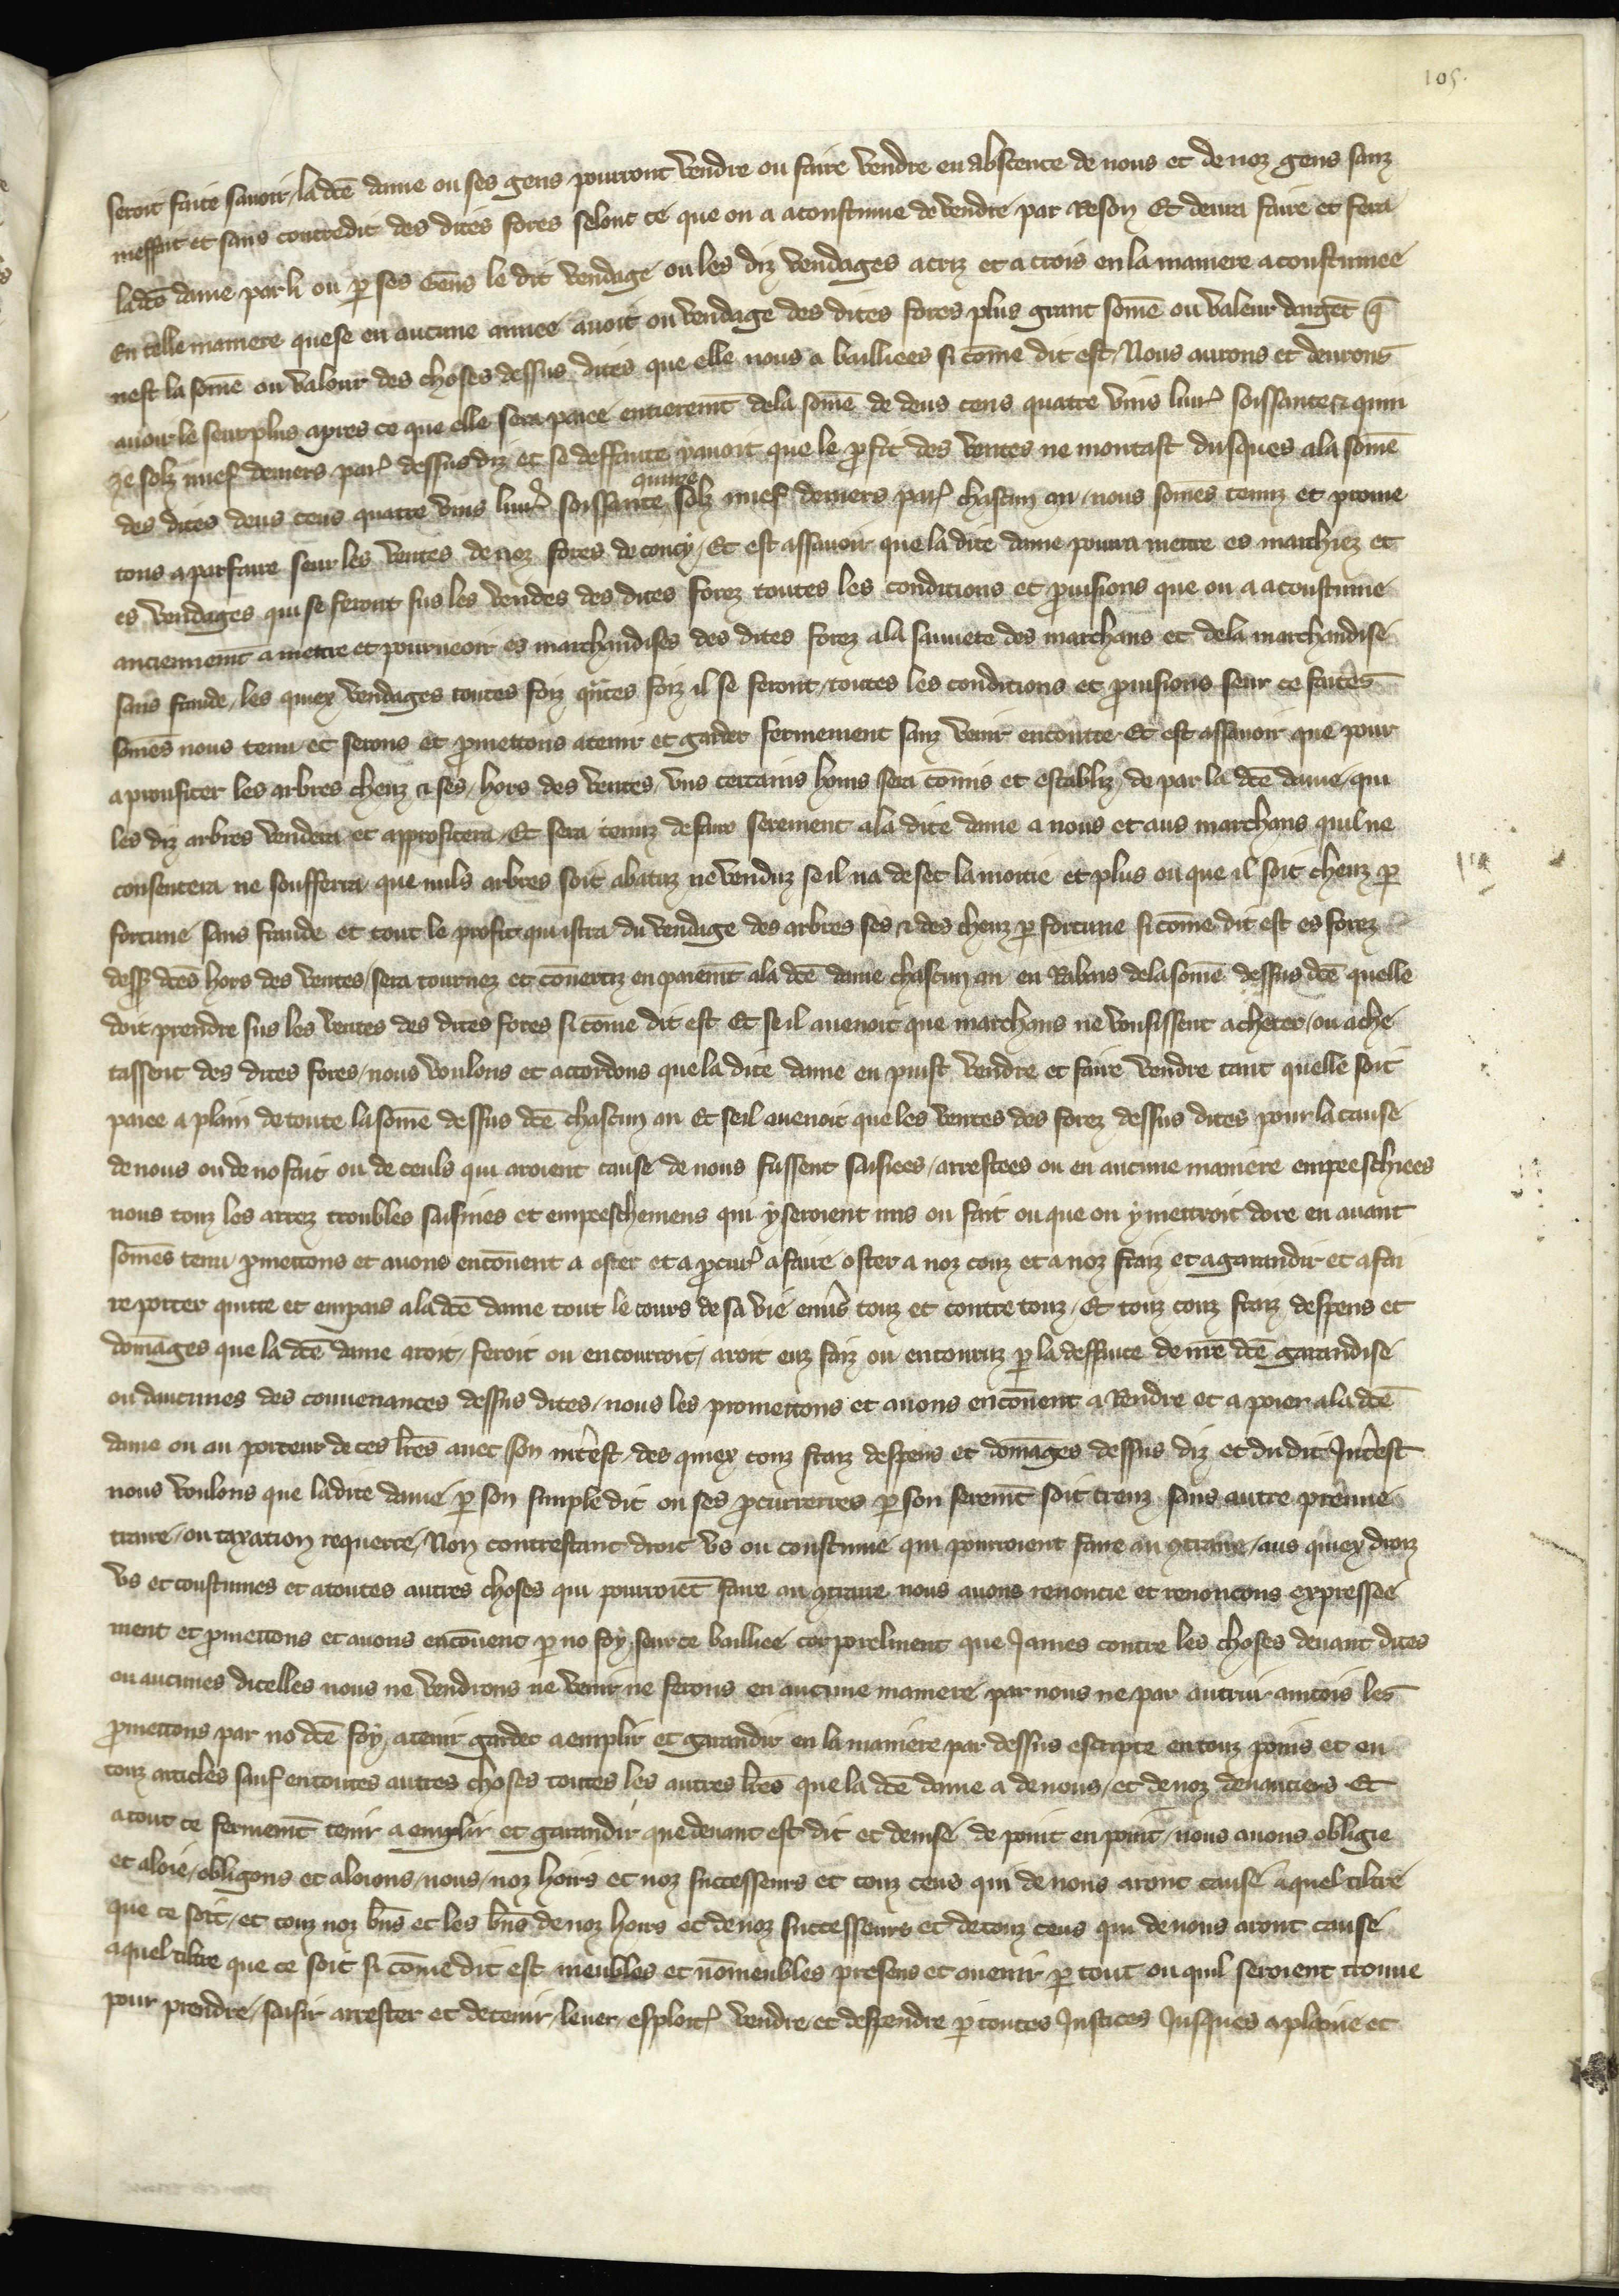 105.
seroit faite savoir, la dcē dame ou ses gens pourront vendre ou faire vendre en abscence de nous et de noz gens sanz
meffait et sans contredit des dites fores selont ce que on a acoustume de vendre par Reson Et devra faire et fera
la dcē dame par li ou ꝑ ses Gens le dit vendage ou les diz vendages a criz et a crois en la maniere acoustumee
En telle maniere que se en aucune annee avoit ou vendage des dites fores plus grant som̄e ou valeur dargēt q̄
nest la som̄e ou valour des choses dessus dites que elle nous a bailliees si com̄e dit est, Nous aurons et devrons
avoir le seurplus apres ce que elle sera paiee entierem̄t de la som̄e de deus cens quatre vins livr̉ soissante & quin
ze solz nuef deniers par̉ dessus diz et se deffaute y avoit que le ꝓfit des ventes ne montast dusques a la som̄e
des dites deus cens quatre vins livr̉ soissante quinze solz nuef deniers par̉ chascun an, nous som̄es tenuz et prome
tons a parfaire seur les ventes de noz fores de coucy, Et est assavoir que la dite dame pourra mettre es marchiez et
es vendages qui se feront sus les vendes des dites forez toutes les conditions et ꝓvisions que on a acoustume
anciennem̄t a mettre et pourveoir es marchandises des dites forez a la sauvete des marchans et de la marchandise
sans fraude, les quiex vendages toutes foiz q̄ntes foiz il se feront, toutes les conditions et ꝓvisions seur ce faites
som̄es nous tenu et serons et ꝓmettons a tenir et garder fermement sanz venir encontre Et est assavoir que pour
a proufiter les arbres cheuz & ses, hors des ventes, uns certains hom̄s sera com̄is et establiz, de par la dcē dame, qui
les diz arbres vendera et approfitera, Et sera tenuz de faire serement a la dite dame a nous et aus marchans quil ne
consentera ne soufferra que nuls arbres soit abatuz ne venduz se il na de sec la moitie et plus ou que il soit cheuz ꝑ
fortune sans fraude et tout le profit qui istra du vendage des arbres ses & des cheuz ꝑ fortune si com̄e dit est es forez
dess᷒ dcēs hors des ventes, sera tournez et cōvertiz en paiem̄t a la dcē dame chascun an en Rabais de la som̄e dessus dcē quelle
doit prendre sus les ventes des dites fores si com̄e dit est Et se il avenoit que marchans ne vousissent acheter, ou ache
tassent des dites fores, nous voulons et accordons que la dite dame en puist vendre et faire vendre tant quelle soit
paiee a plain de toute la som̄e dessus dcē chascun an Et se il avenoit que les ventes des forez dessus dites pour la cause
de nous ou de no fait ou de ceuls qui aroient cause de nous fussent saisiees, arrestees ou en aucune maniere empeeschiees
nous touz les arrez troubles saisines et empeeschemens qui y seroient mis ou fait ou que on y mettroit dore en avant
som̄es tenu ꝓmettons et avons encōvent a oster et a ꝓcur̉ a faire oster a noz couz et a noz fraiz et a garandir et a fai
re porter quitte et empais a la dcē dame tout le cours de sa vie enṽs touz et contre touz, Et touz couz fraiz despens et
dom̄ages que la dcē dame aroit, feroit ou encourroit, aroit euz faiz ou encouruz ꝑ la deffaute de nr̄e dcē garandise
ou daucunes des convenances dessus dites, nous les promettons et avons encōvent a Rendre et a poier a la dcē
dame ou au porteur de ces lr̄es avec son int̉est, des quiex couz fraiz despens et dom̄ages dessus diz et du dit Int̉est
nous voulons que la dite dame ꝑ son simple dit ou ses ꝓcurerres ꝑ son serem̄t soit creuz sans autre preuve
traire, ou taxation requerre, Non contrestant droit us ou coustume qui pourroient faire au ꝯtraire, aus quiex droiz
us et coustumes et a toutes autres choses qui pourroiēt faire au ꝯtraire nous avons renoncie et renoncons expressee
ment et ꝓmettons et avons encōvent ꝑ no foy seur ce bailliee corporelment que James contre les choses devant dites
ou aucunes dicelles nous ne vendrons ne venir ne ferons en aucune maniere par nous ne par autrui aincois les
ꝓmettons par no dcē foy, a tenir garder a emplir et garandir en la maniere par dessus escripte en touz poins et en
touz articles sauf en toutes autres choses toutes les autres lr̄es que la dcē dame a de nous, et de noz devanciers Et
a tout ce fermem̄t tenir a emplir et garandir que devant est dit et devise de point en point, nous avons obligie
et aloie, obligons et aloions, nous, noz hoirs et noz successeurs et touz ceus qui de nous aront cause a quel tiltre
que ce soit, et touz noz bn̄s et les bn̄s de noz hoirs et de noz successeurs et de touz ceus qui de nous aront cause
a quel tiltre que ce soit si com̄e dit est meubles et nōmeubles presens et avenir ꝑ tout ou quil seroient trouve
pour prendre, saisir arrester et detenir, lever, esploit̉ vendre et despendre ꝑ toutes Justices Jusques a plaine et